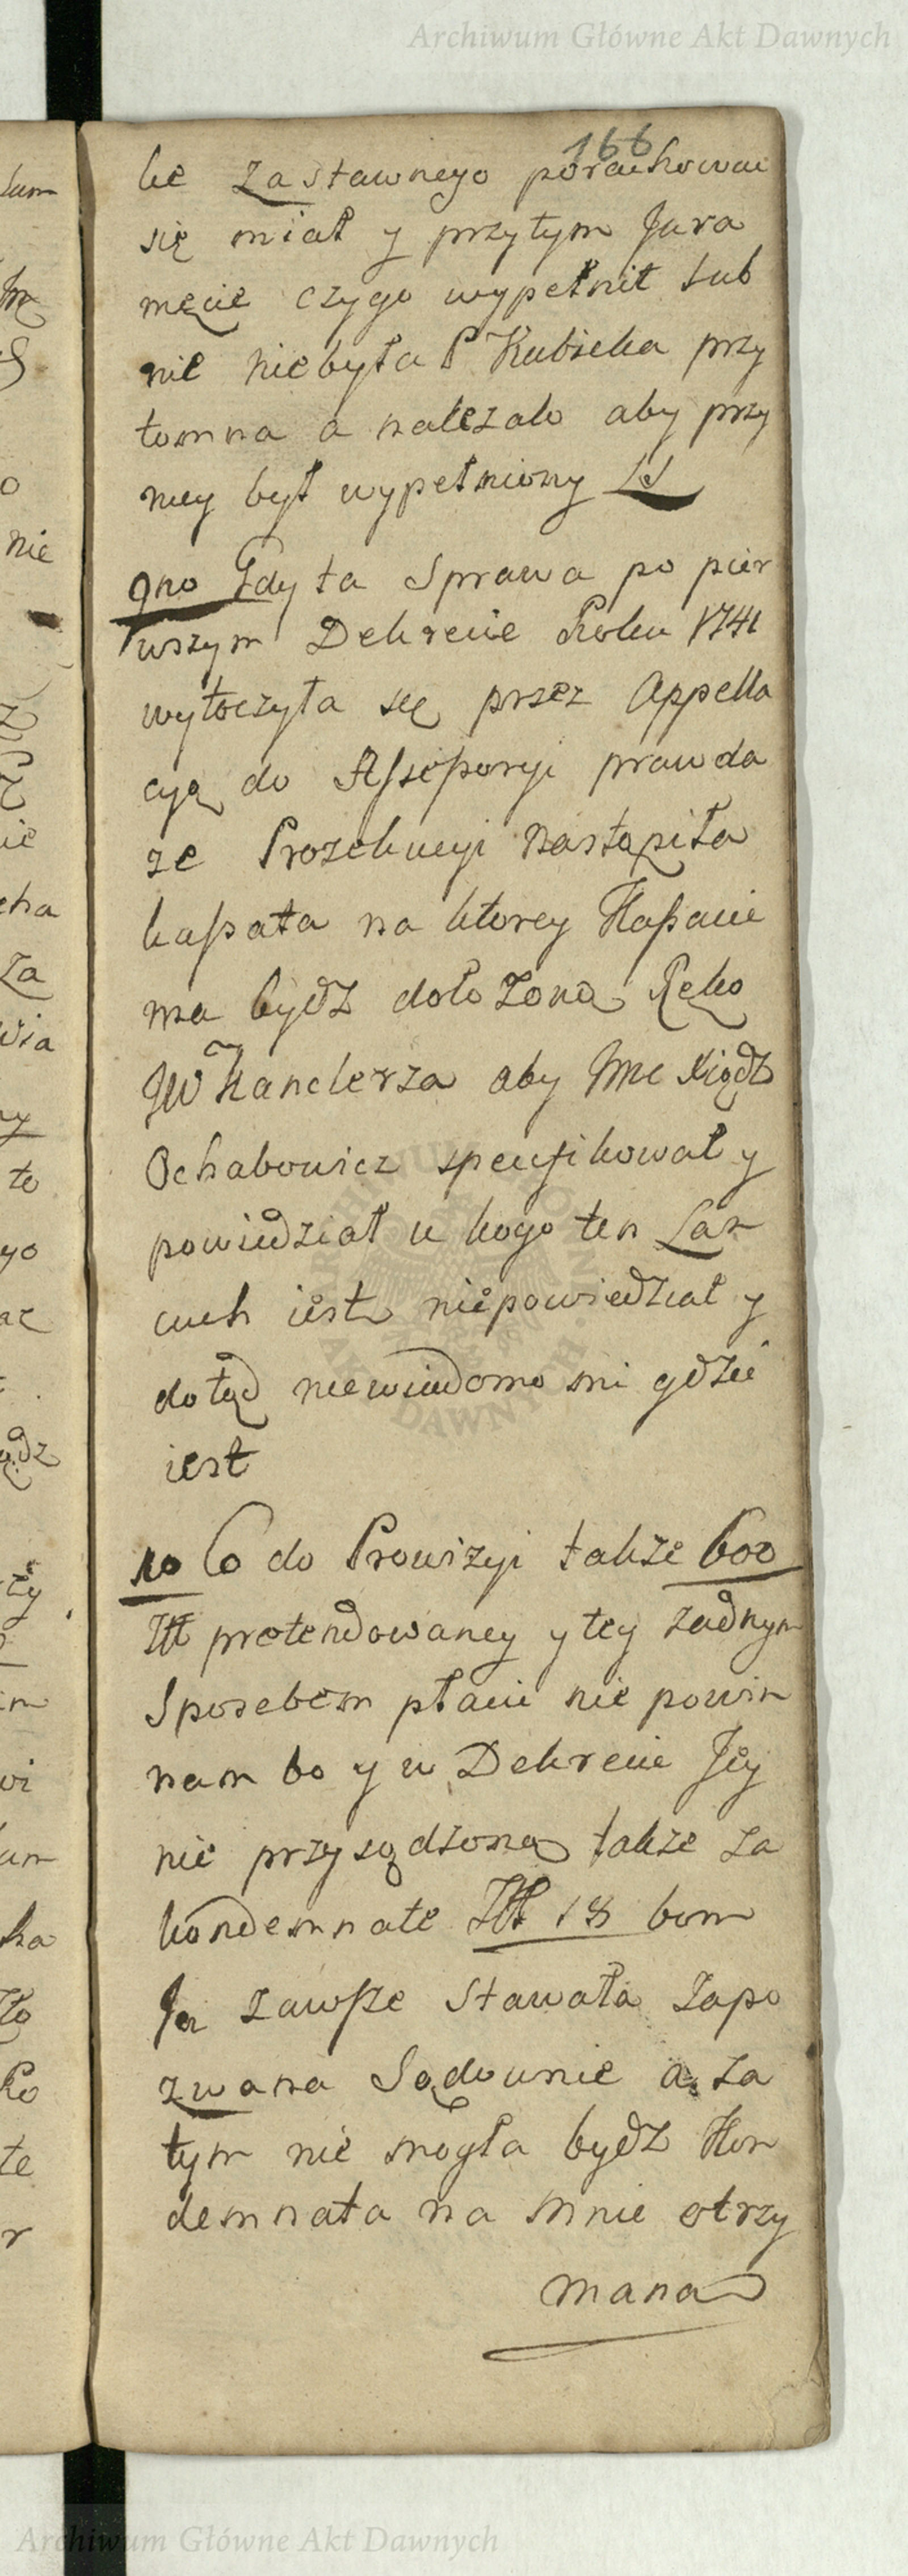 Archiwum Główne Akt Dawnych
166
ke Zastawnego porachować
się miał y przytym Jura
męcie czego wypełnił lub
nie niebyła P Kubicka przy
tomna a należało aby przy
niey był wypełniony
9no Gdy ta Sprawa po pier
wszym Dekrecie Roku 1741
wytoczyła się przez Appella
cyą do Assessoryi prawda
że Prozekucyi nastąpiła
kassata na ktorey Kassacie
ma bydź dołożono Ręką
JW Kanclerza aby Jmc Xiądz
Ochabowicz specyfikował y
powiedział u kogo ten Łań
cuch iest niepowiedział y
dotąd niewiadomo mi gdzie
iest
10 Co do Prowizyi także 600
Zł pretendowaney y tey żadnym
Sposobem płacić nie powin
nam bo y w Dekrecie Jey
nie przysądzona także za
kondemnate Zł 18 bom
Ja zawsze stawała zapo
zwana Sądownie a za
tym nie mogła bydź Kon
demnata na mnie otrzy
mana
Archiwum Główne Akt Dawnych